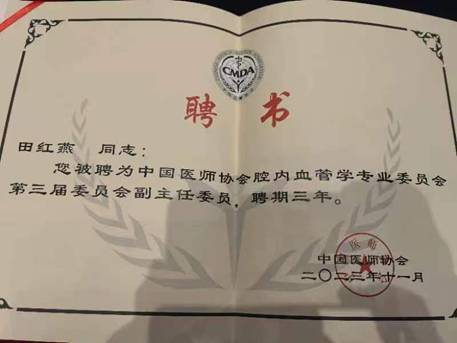 CMDA
聘书
田红燕 同志：
您被聘为中国医师协会腔内血管学专业委员会
第三届委员会副主任委员，聘期三年。
中国医师协会
二〇二三年十一月